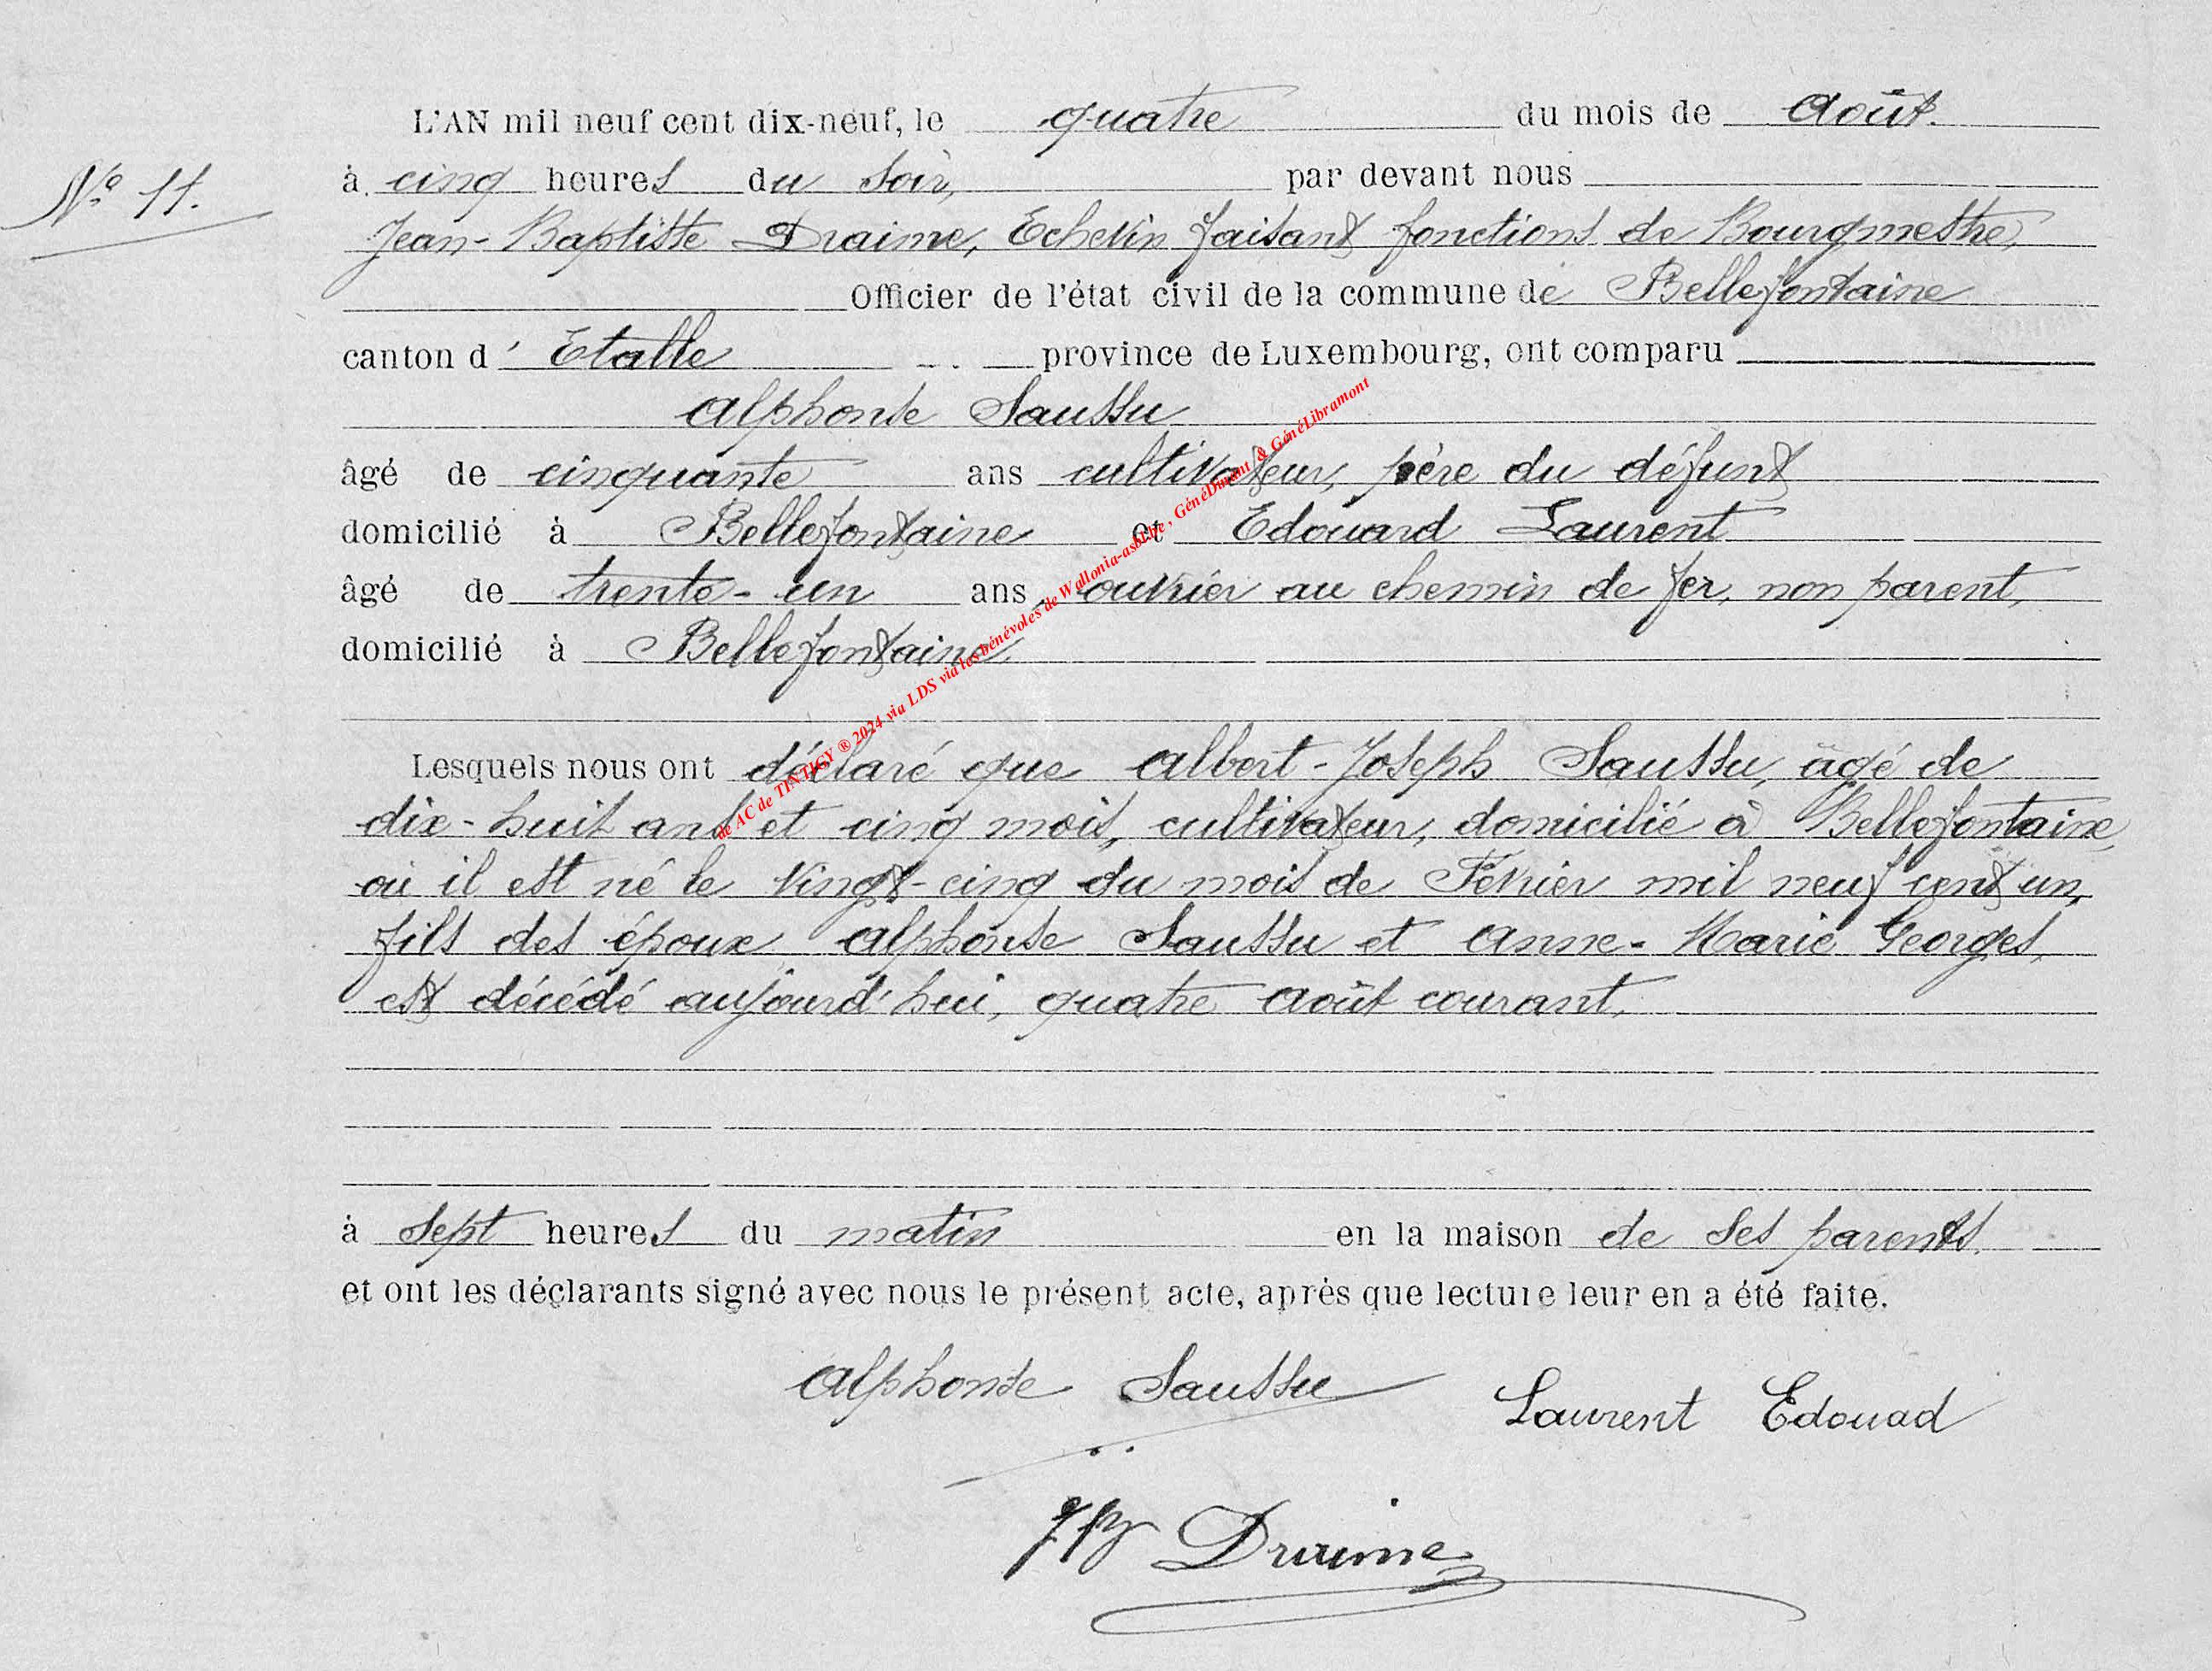 L'AN mil neuf cent dix-neuf, le quatre du mois de Août.
N° 11.
à cinq heures du soir, par devant nous
Jean-Baptiste Draime, Echevin faisant fonctions de Bourgmestre,
Officier de l'état civil de la commune de Bellefontaine
canton d' Etalle province de Luxembourg, ont comparu
Alphonse Saussu
âgé de cinquante ans cultivateur, père du défunt
domicilié à Bellefontaine et Edouard Laurent
âgé de trente-un ans, ouvrier au chemin de fer, non parent,
domicilié à Bellefontaine
de AC de TINTIGY ® 2024 via LDS via les bénévoles de Wallonia-asbl.be, GénéDinant, & GénéLibramont
Lesquels nous ont déclaré que Albert-Joseph Saussu, âgé de
dix-huit ans et cinq mois, cultivateur, domicilié à Bellefontaine,
où il est né le vingt-cinq du mois de Février mil neuf cent un,
fils des époux Alphonse Saussu et Anne-Marie Georges,
est décédé aujourd'hui, quatre août courant,
à sept heures du matin en la maison de ses parents.
et ont les déclarants signé avec nous le présent acte, après que lecture leur en a été faite.
Alphonse Saussu
Laurent Edouad
JB Draime